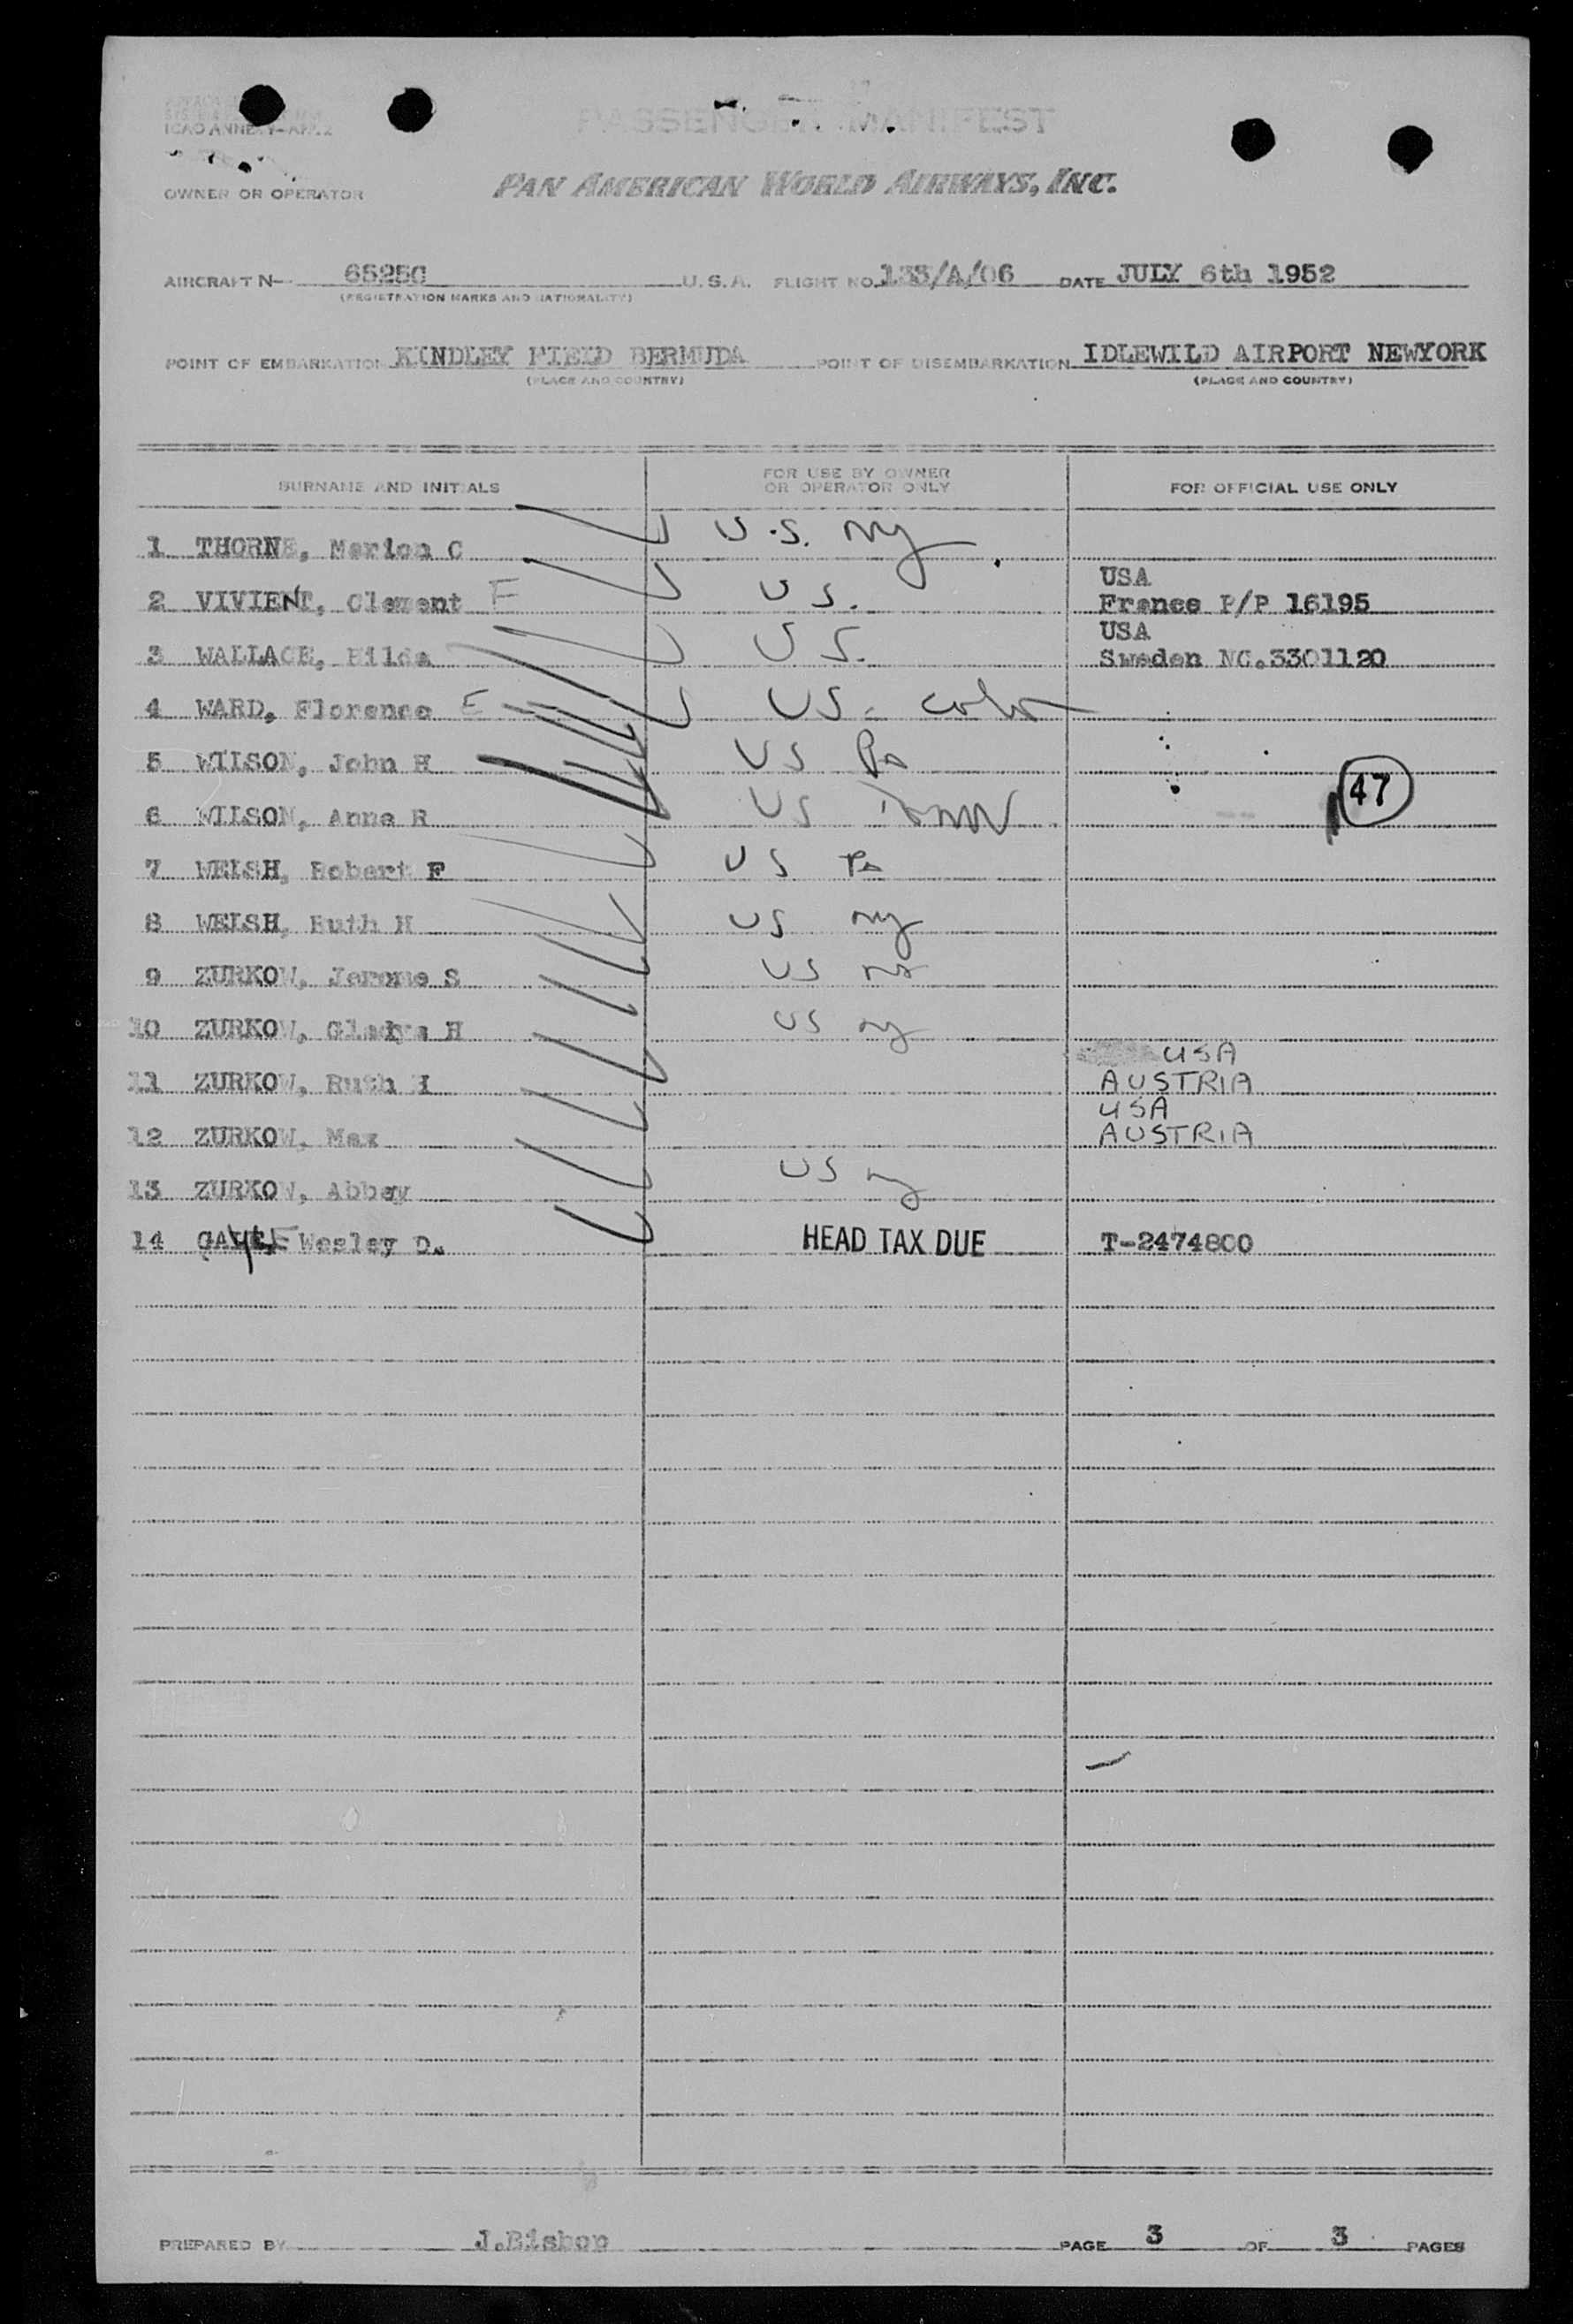 ICAO ANNEX 9-APP.2
PASSENGER MANIFEST
OWNER OR OPERATOR PAN AMERICAN WORLD AIRWAYS, INC.
AIRCRAFT N- 6525C U.S.A. FLIGHT NO. 133/A/06 DATE JULY 6th 1952
(REGISTRATION MARKS AND NATIONALITY)
POINT OF EMBARKATION KINDLEY FIELD BERMUDA POINT OF DISEMBARKATION IDLEWILD AIRPORT NEWYORK
(PLACE AND COUNTRY) (PLACE AND COUNTRY)
SURNAME AND INITIALS FOR USE BY OWNER OR OPERATOR ONLY FOR OFFICIAL USE ONLY
1 THORNE, Marion C U.S. ny
USA
2 VIVIENT, Clement F US. France P/P 16195
USA
3 WALLACE, Hilda US. Sweden NC.3301120
4 WARD, Florence E US. Colo
5 WILSON, John H US Pa
47
6 WILSON, Anna R US
7 WELSH, Robert F US Pa
8 WELSH, Ruth H US ny
9 ZURKOW, Jerome S US
10 ZURKOW, Gladys H US ny
USA
11 ZURKOW, Ruth H AUSTRIA
USA
12 ZURKOW, Max AUSTRIA
13 ZURKOW, Abbey US ny
14 GAYLE Wesley D. HEAD TAX DUE T-2474800
PREPARED BY J.Bishop PAGE 3 OF 3 PAGES